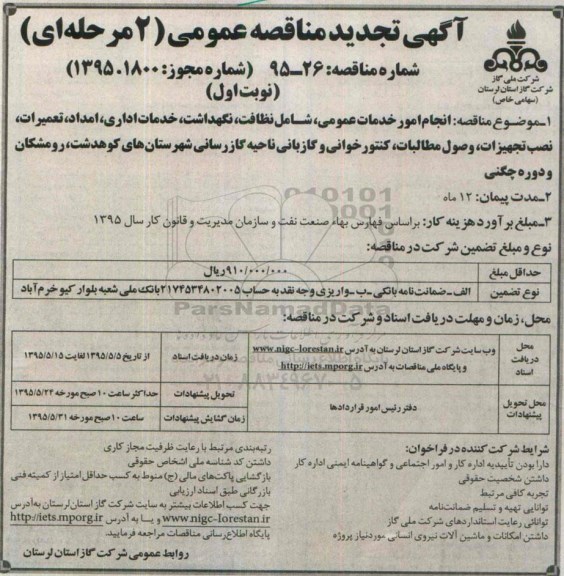 آگهی تجدید مناقصه عمومی (۲ مرحله‌ای)
شرکت ملی گاز
شرکت گاز استان لرستان
(سهامی خاص)
شماره مناقصه: ۲۶-۹۵ (شماره مجوز: ۱۸۰۰.۱۳۹۵)
(نوبت اول)
۱-موضوع مناقصه: انجام امور خدمات عمومی، شامل نظافت، نگهداشت، خدمات اداری، امداد، تعمیرات،
نصب تجهیزات، وصول مطالبات، کنتورخوانی و گازبانی ناحیه گازرسانی شهرستان‌های کوهدشت، رومشکان
و دوره چگنی
۲-مدت پیمان: ۱۲ ماه
۳-مبلغ برآورد هزینه کار: براساس فهارس بهاء صنعت نفت و سازمان مدیریت و قانون کار سال ۱۳۹۵
نوع و مبلغ تضمین شرکت در مناقصه:
حداقل مبلغ ۹۱۰/۰۰۰/۰۰۰ریال
نوع تضمین الف-ضمانت‌نامه بانکی-ب-واریزی وجه نقد به حساب ۲۱۷۴۵۳۴۸۰۲۰۰۵ بانک ملی شعبه بلوار کیو خرم‌آباد
ParsNamadData
محل، زمان و مهلت دریافت اسناد و شرکت در مناقصه:
محل دریافت اسناد
وب سایت شرکت گاز استان لرستان به آدرس www.nigc-lorestan.ir
و پایگاه ملی مناقصات به آدرس http://iets.mporg.ir
زمان دریافت اسناد از تاریخ ۱۳۹۵/۵/۵ لغایت ۱۳۹۵/۵/۱۵
محل تحویل پیشنهادات دفتر رئیس امور قراردادها
تحویل پیشنهادات حداکثر ساعت ۱۰ صبح مورخه ۱۳۹۵/۵/۲۴
زمان گشایش پیشنهادات ساعت ۱۰ صبح مورخه ۱۳۹۵/۵/۳۱
شرایط شرکت کننده در فراخوان:
دارا بودن تأییدیه اداره کار و امور اجتماعی و گواهینامه ایمنی اداره کار
داشتن شخصیت حقوقی
تجربه کافی مرتبط
توانایی تهیه و تسلیم ضمانت‌نامه
توانائی رعایت استانداردهای شرکت ملی گاز
داشتن امکانات و ماشین آلات نیروی انسانی موردنیاز پروژه
رتبه‌بندی مرتبط با رعایت ظرفیت مجاز کاری
داشتن کد شناسه ملی اشخاص حقوقی
بازگشایی پاکت‌های مالی (ج) منوط به کسب حداقل امتیاز از کمیته فنی
بازرگانی طبق اسناد ارزیابی
جهت کسب اطلاعات بیشتر به سایت شرکت گاز استان لرستان به‌آدرس
www.nigc-lorestan.ir و یا به آدرس http://iets.mporg.ir
پایگاه اطلاع‌رسانی مناقصات مراجعه فرمایید.
روابط عمومی شرکت گاز استان لرستان